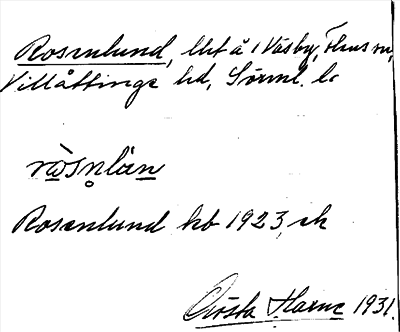 Rosenlund, lht å 1 Väsby, Flens sn,
Villåttinge hd, Sörml. l.
ròsn̥län
Rosenlund hb 1923, ek
Gösta Harne 1931.